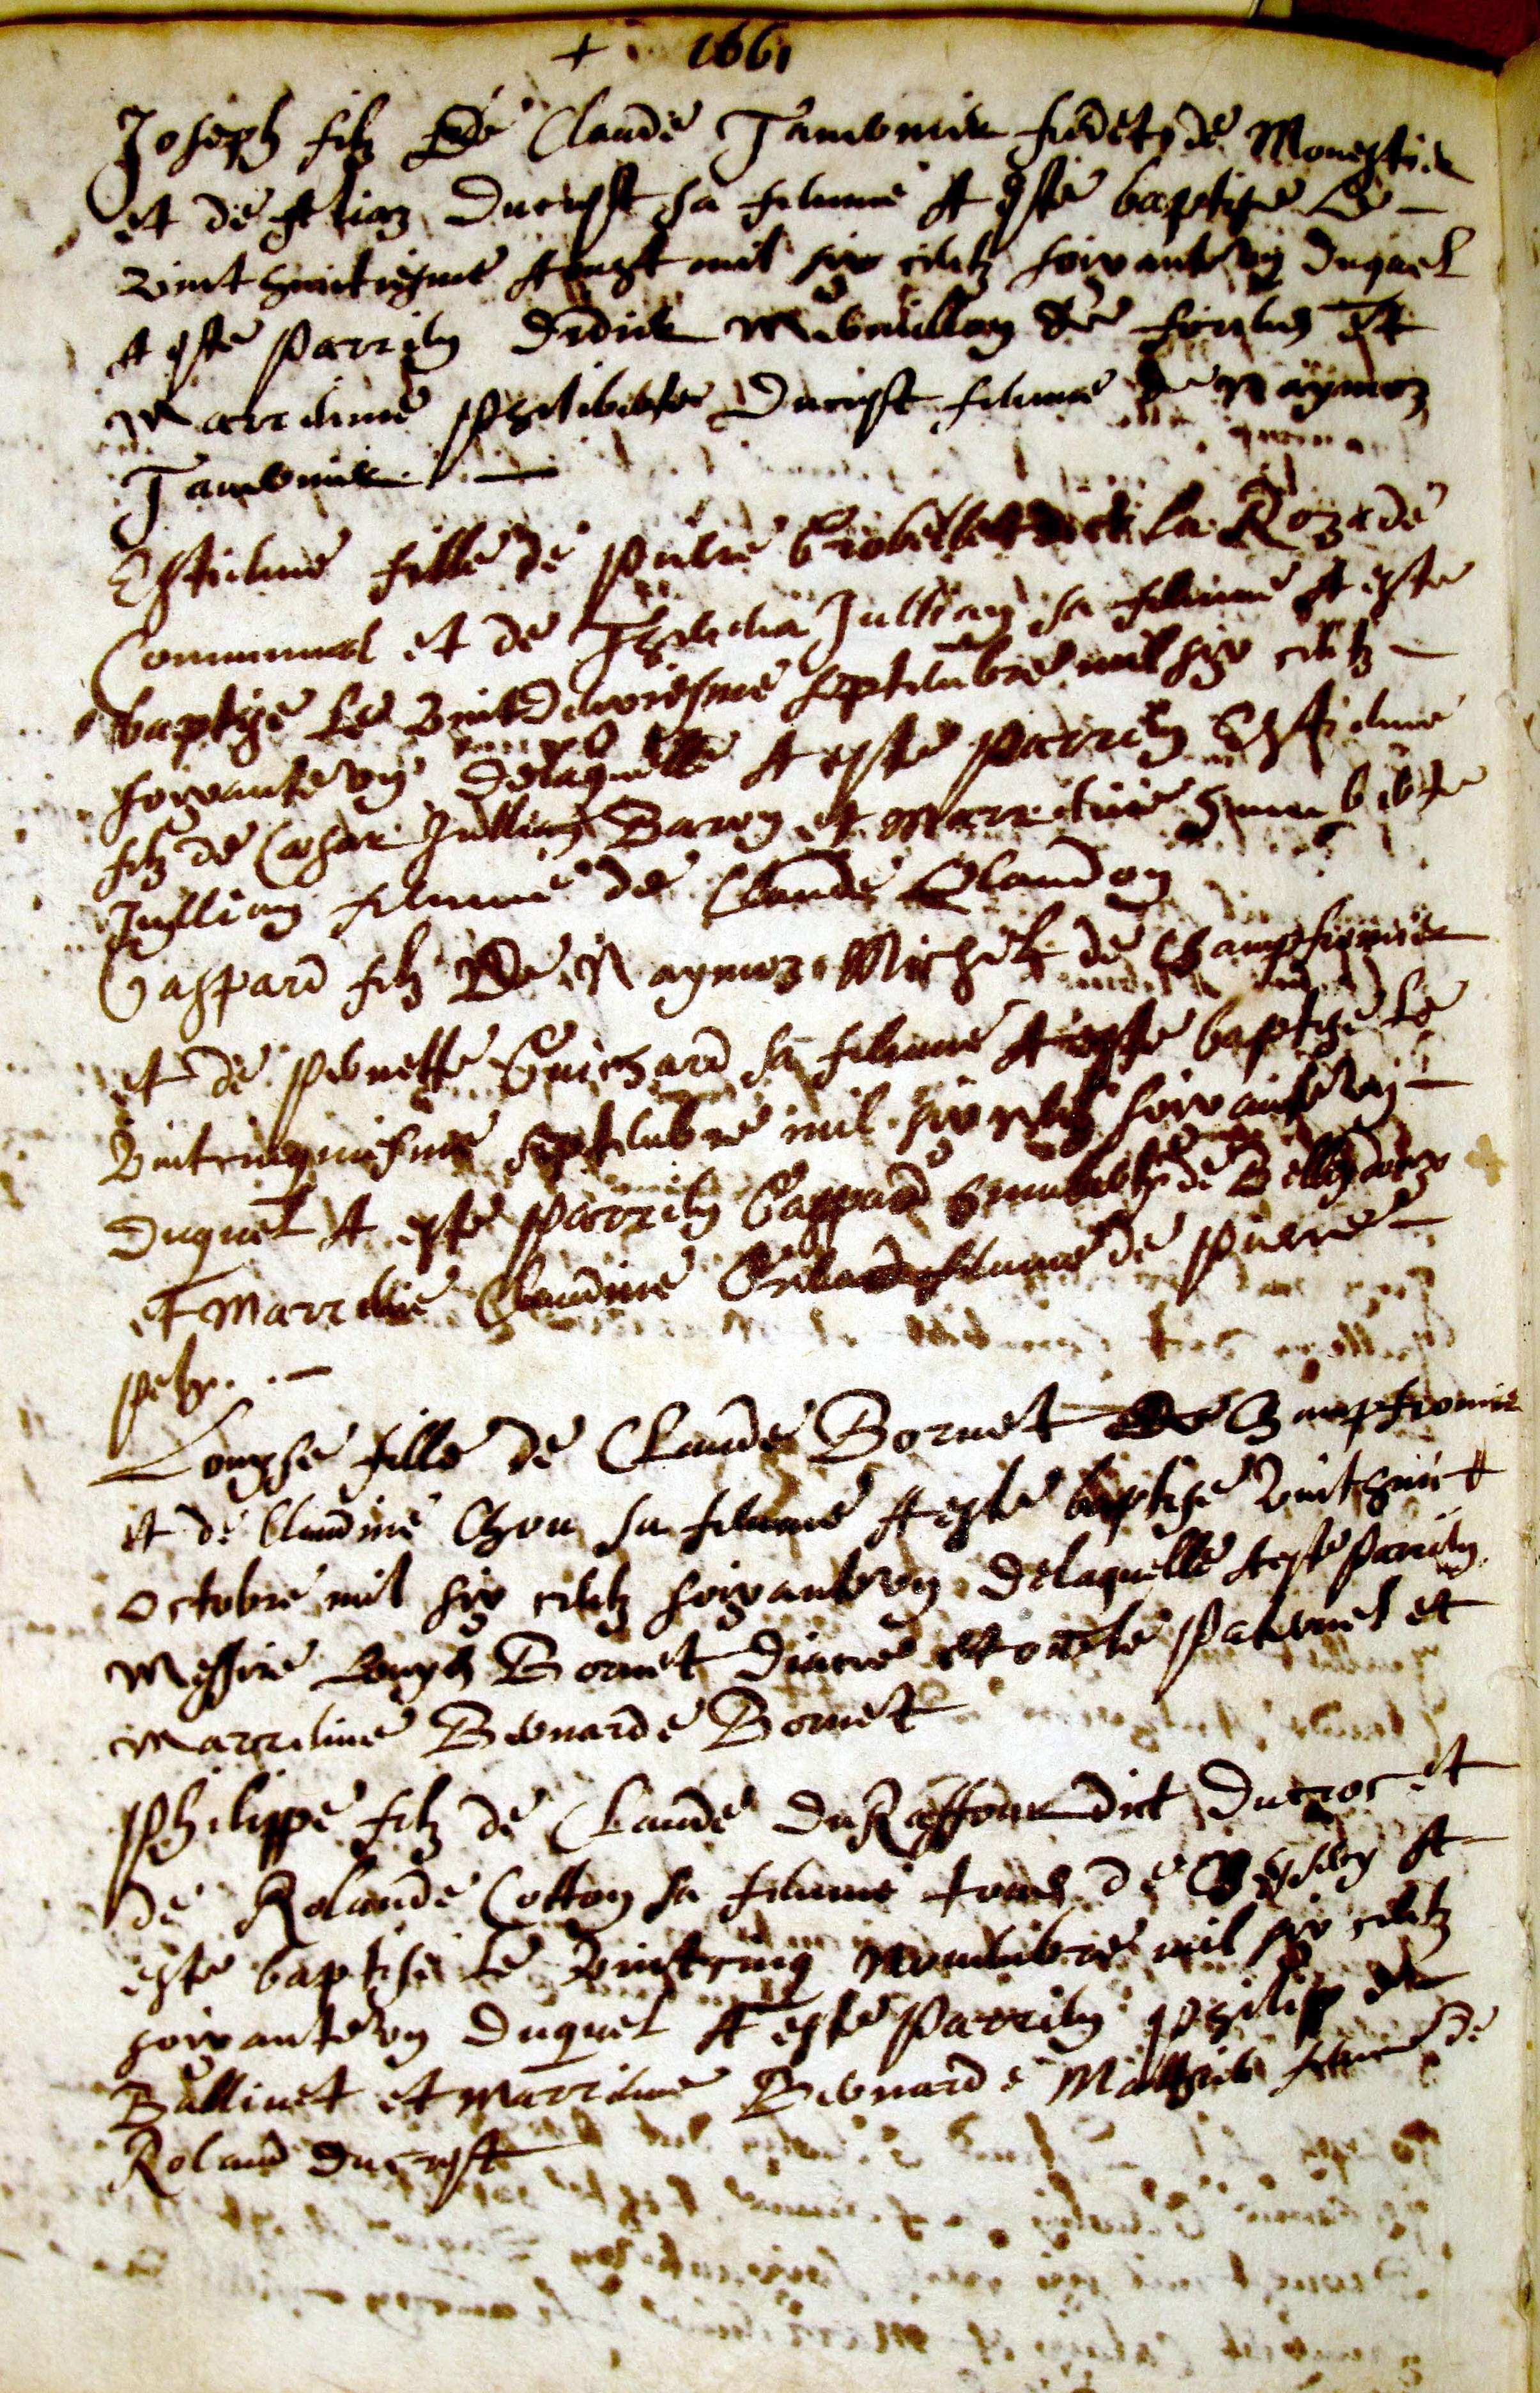 + 1661
Joseph filz de Claude Tavernier de Monestier
et de Ducrest sa femme A esté baptizé le
vint huictiesme Aougst mil six centz soixante vng duquel
A esté parrein Didier Mermillon de et
Marreinne Philiberte Ducrest femme de Naymoz
Tavernier
Estienne fille de Pierre dict la Roza de
Communal et de Jullian sa femme A esté
baptizé le vint deuxiesme septembre mil six centz
soixante vng delaquelle A esté parrein Estienne
filz de Caesar Jullian Baron et Marreine Humberte
Jullian femme de Claude Blandon
Gaspard filz de Naymoz Michel de Champfromier
et de Pernette Guichard sa femme A esté baptizé le
vintcinquiesme septembre mil six centz soixante vng
duquel A esté parrein Gaspard Humbert de
et Marreine Claudine femme de Pierre

Louyse fille de Claude Bornet de Champfromier
et de Claudine sa femme A esté baptizé vinthuict
octobre mil six centz soixantevng delaquelle A esté parrein
Messire Louys Bornet diacre et oncle paternel et
Marreine Bernarde Bornet
Philippe filz de Claude duRaffour dict Ducroc et
de Rolande Cotton sa femme tous de A
esté baptisé le vintcinq novembre mil six centz
soixantevng duquel A esté parrein Philippe
Ballivet et Marreine Bernarde Mathieu femme de
Roland Ducrest